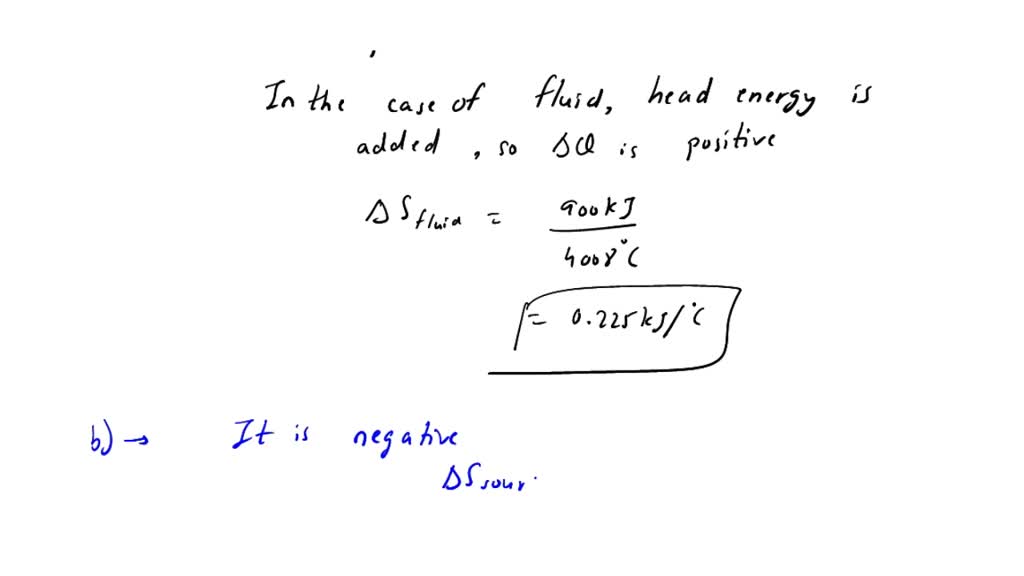 In the case of fluid, head energy is
added, so ΔQ is positive
ΔS fluid = 900kJ
4008°C
= 0.225kJ/°C
b) → It is negative
ΔS sour